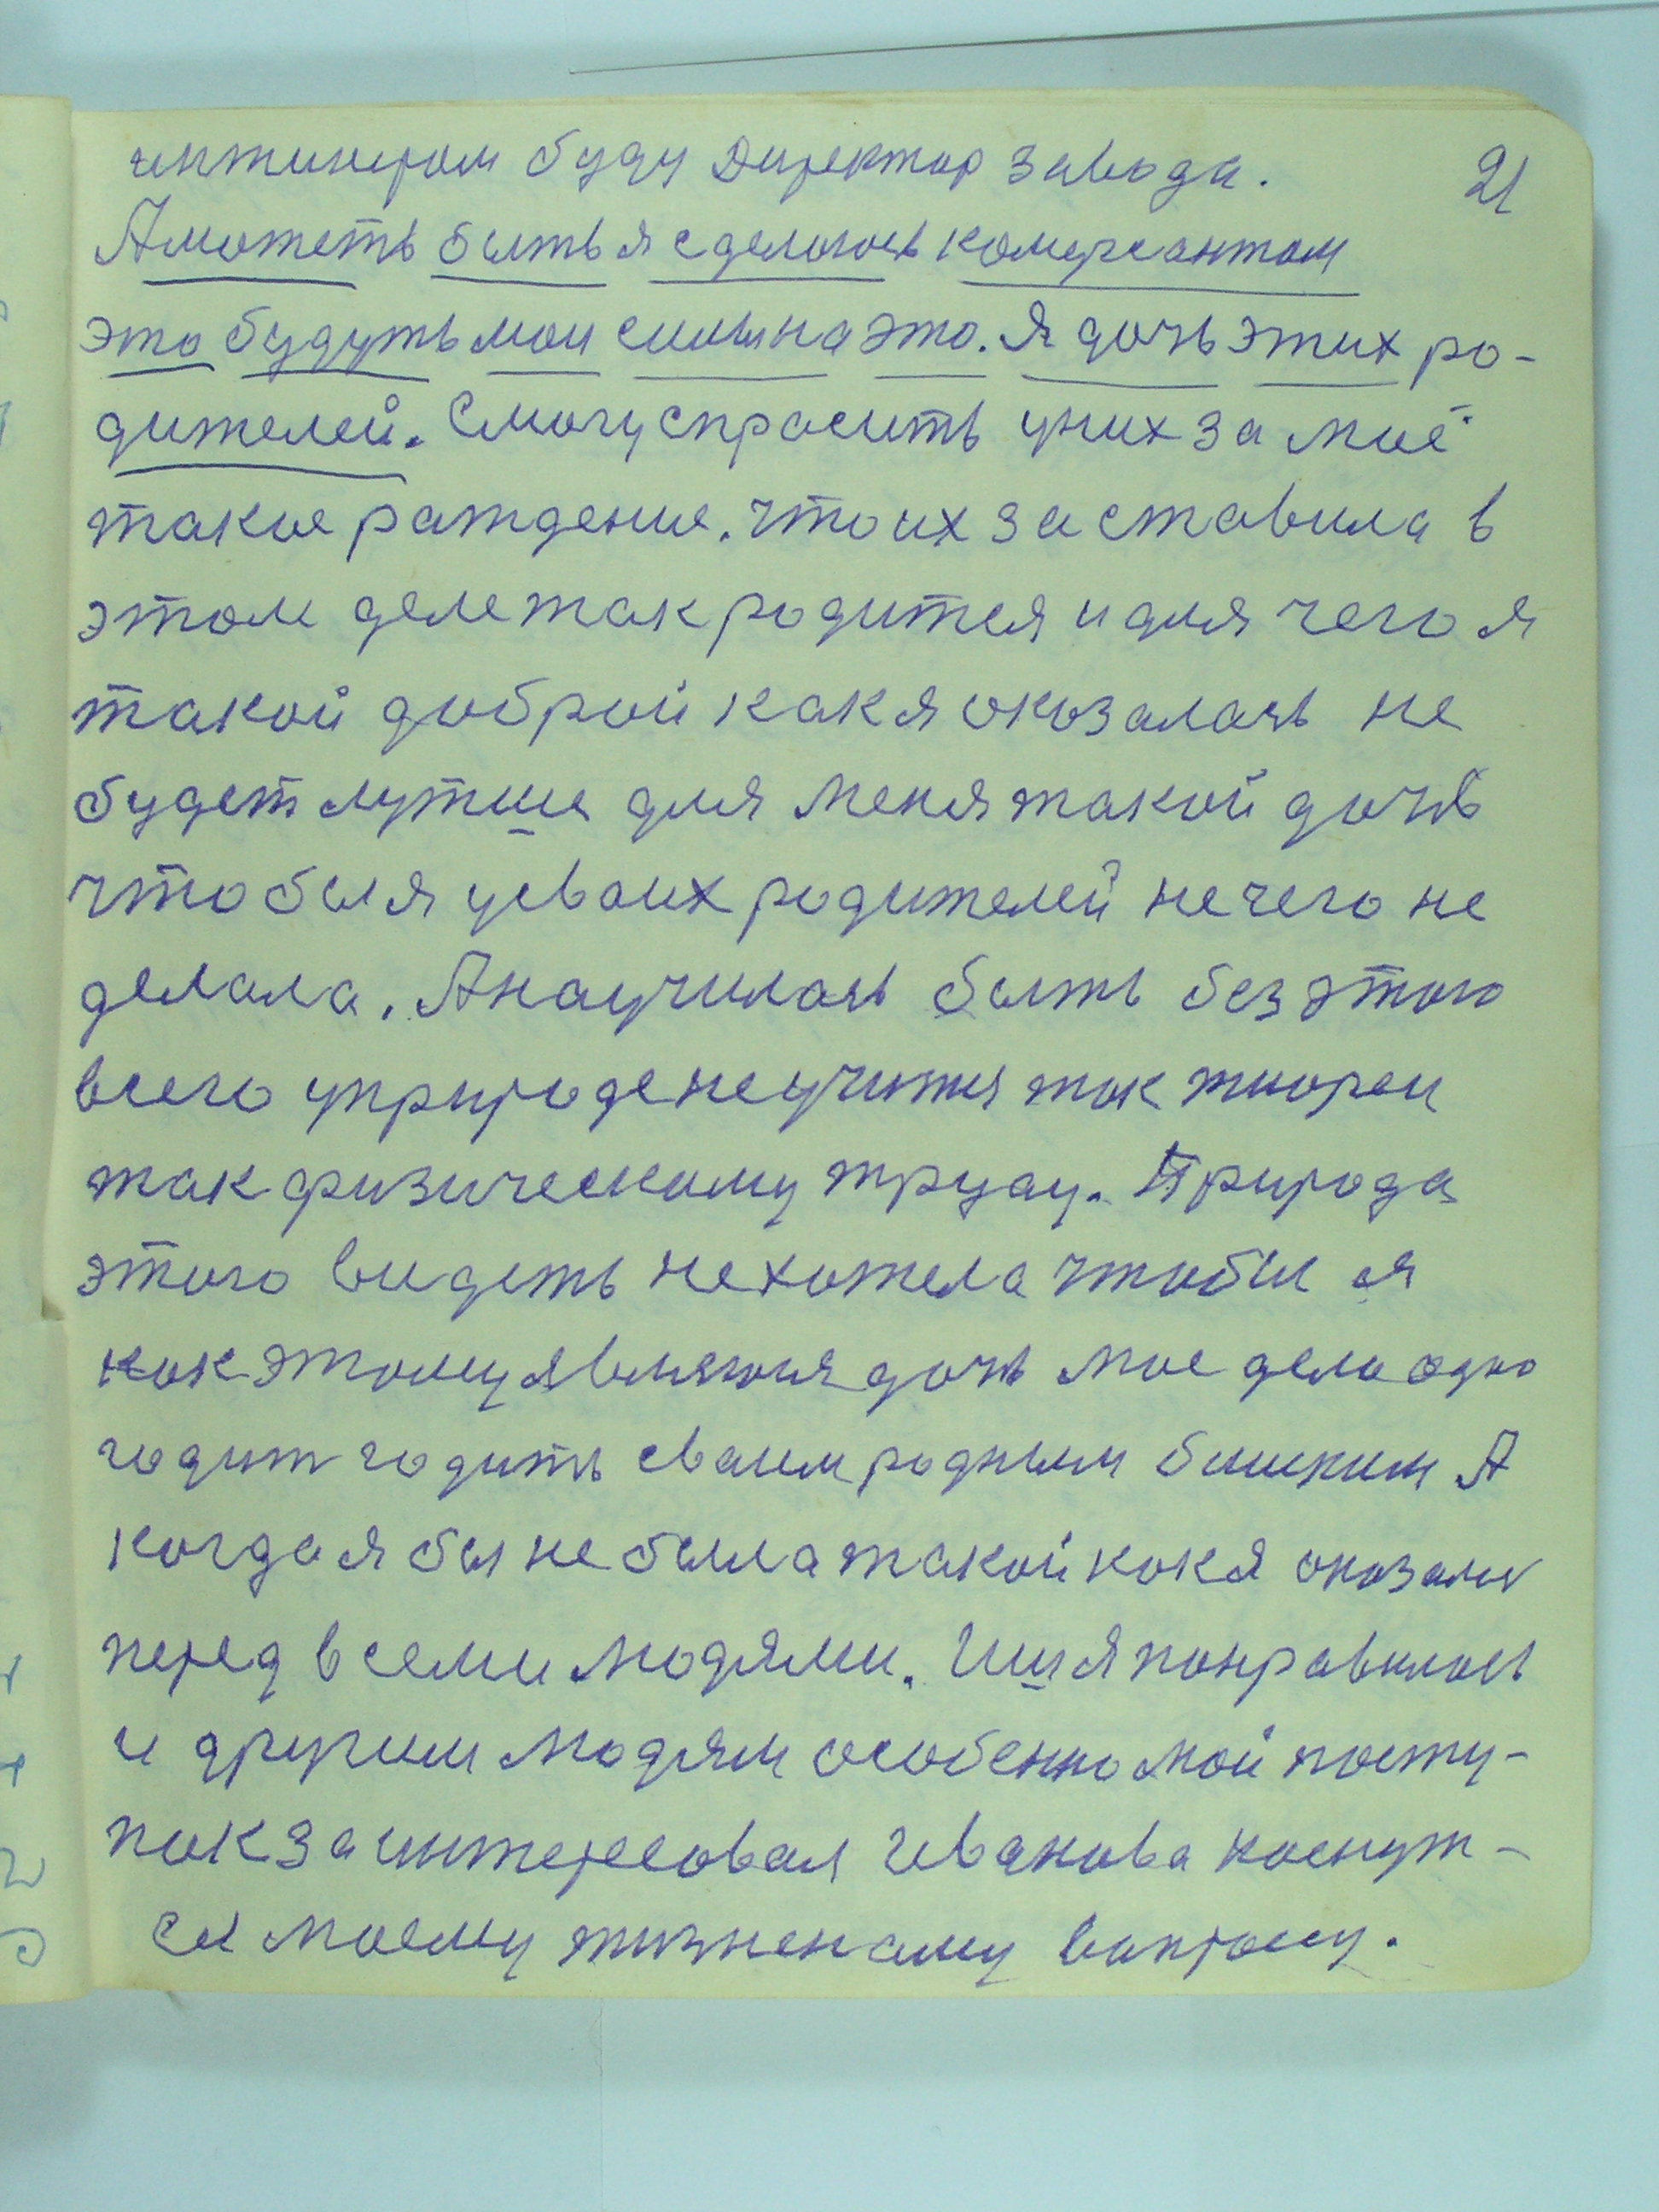 инжинером буду Директор завода. 21
А может быть я сделаюсь комерсантом
это будуть мои силы на это. Я дочь этих ро-
дителей. Смогу спросить у них за моё
такое раждение. что их заставила в
этом деле так родится и для чего я
такой доброй как я оказалась не
будет лутше для меня такой дочь
что бы я у сваих родителей нечего не
делала. А научилась быть без этого
всего у природе не учится так тиореи
так физическому труду. Природа
этого видеть не хотела чтобы я
как этому являюся дочь мое дело одно
годит годить сваим родным близким А
когда я бы не была такой как я оказалась
перед всеми людями. И я понравилась
и другим людям особенно мой посту-
пок заинтересовал Иванова коснут-
ся моему жизненаму вопросу.